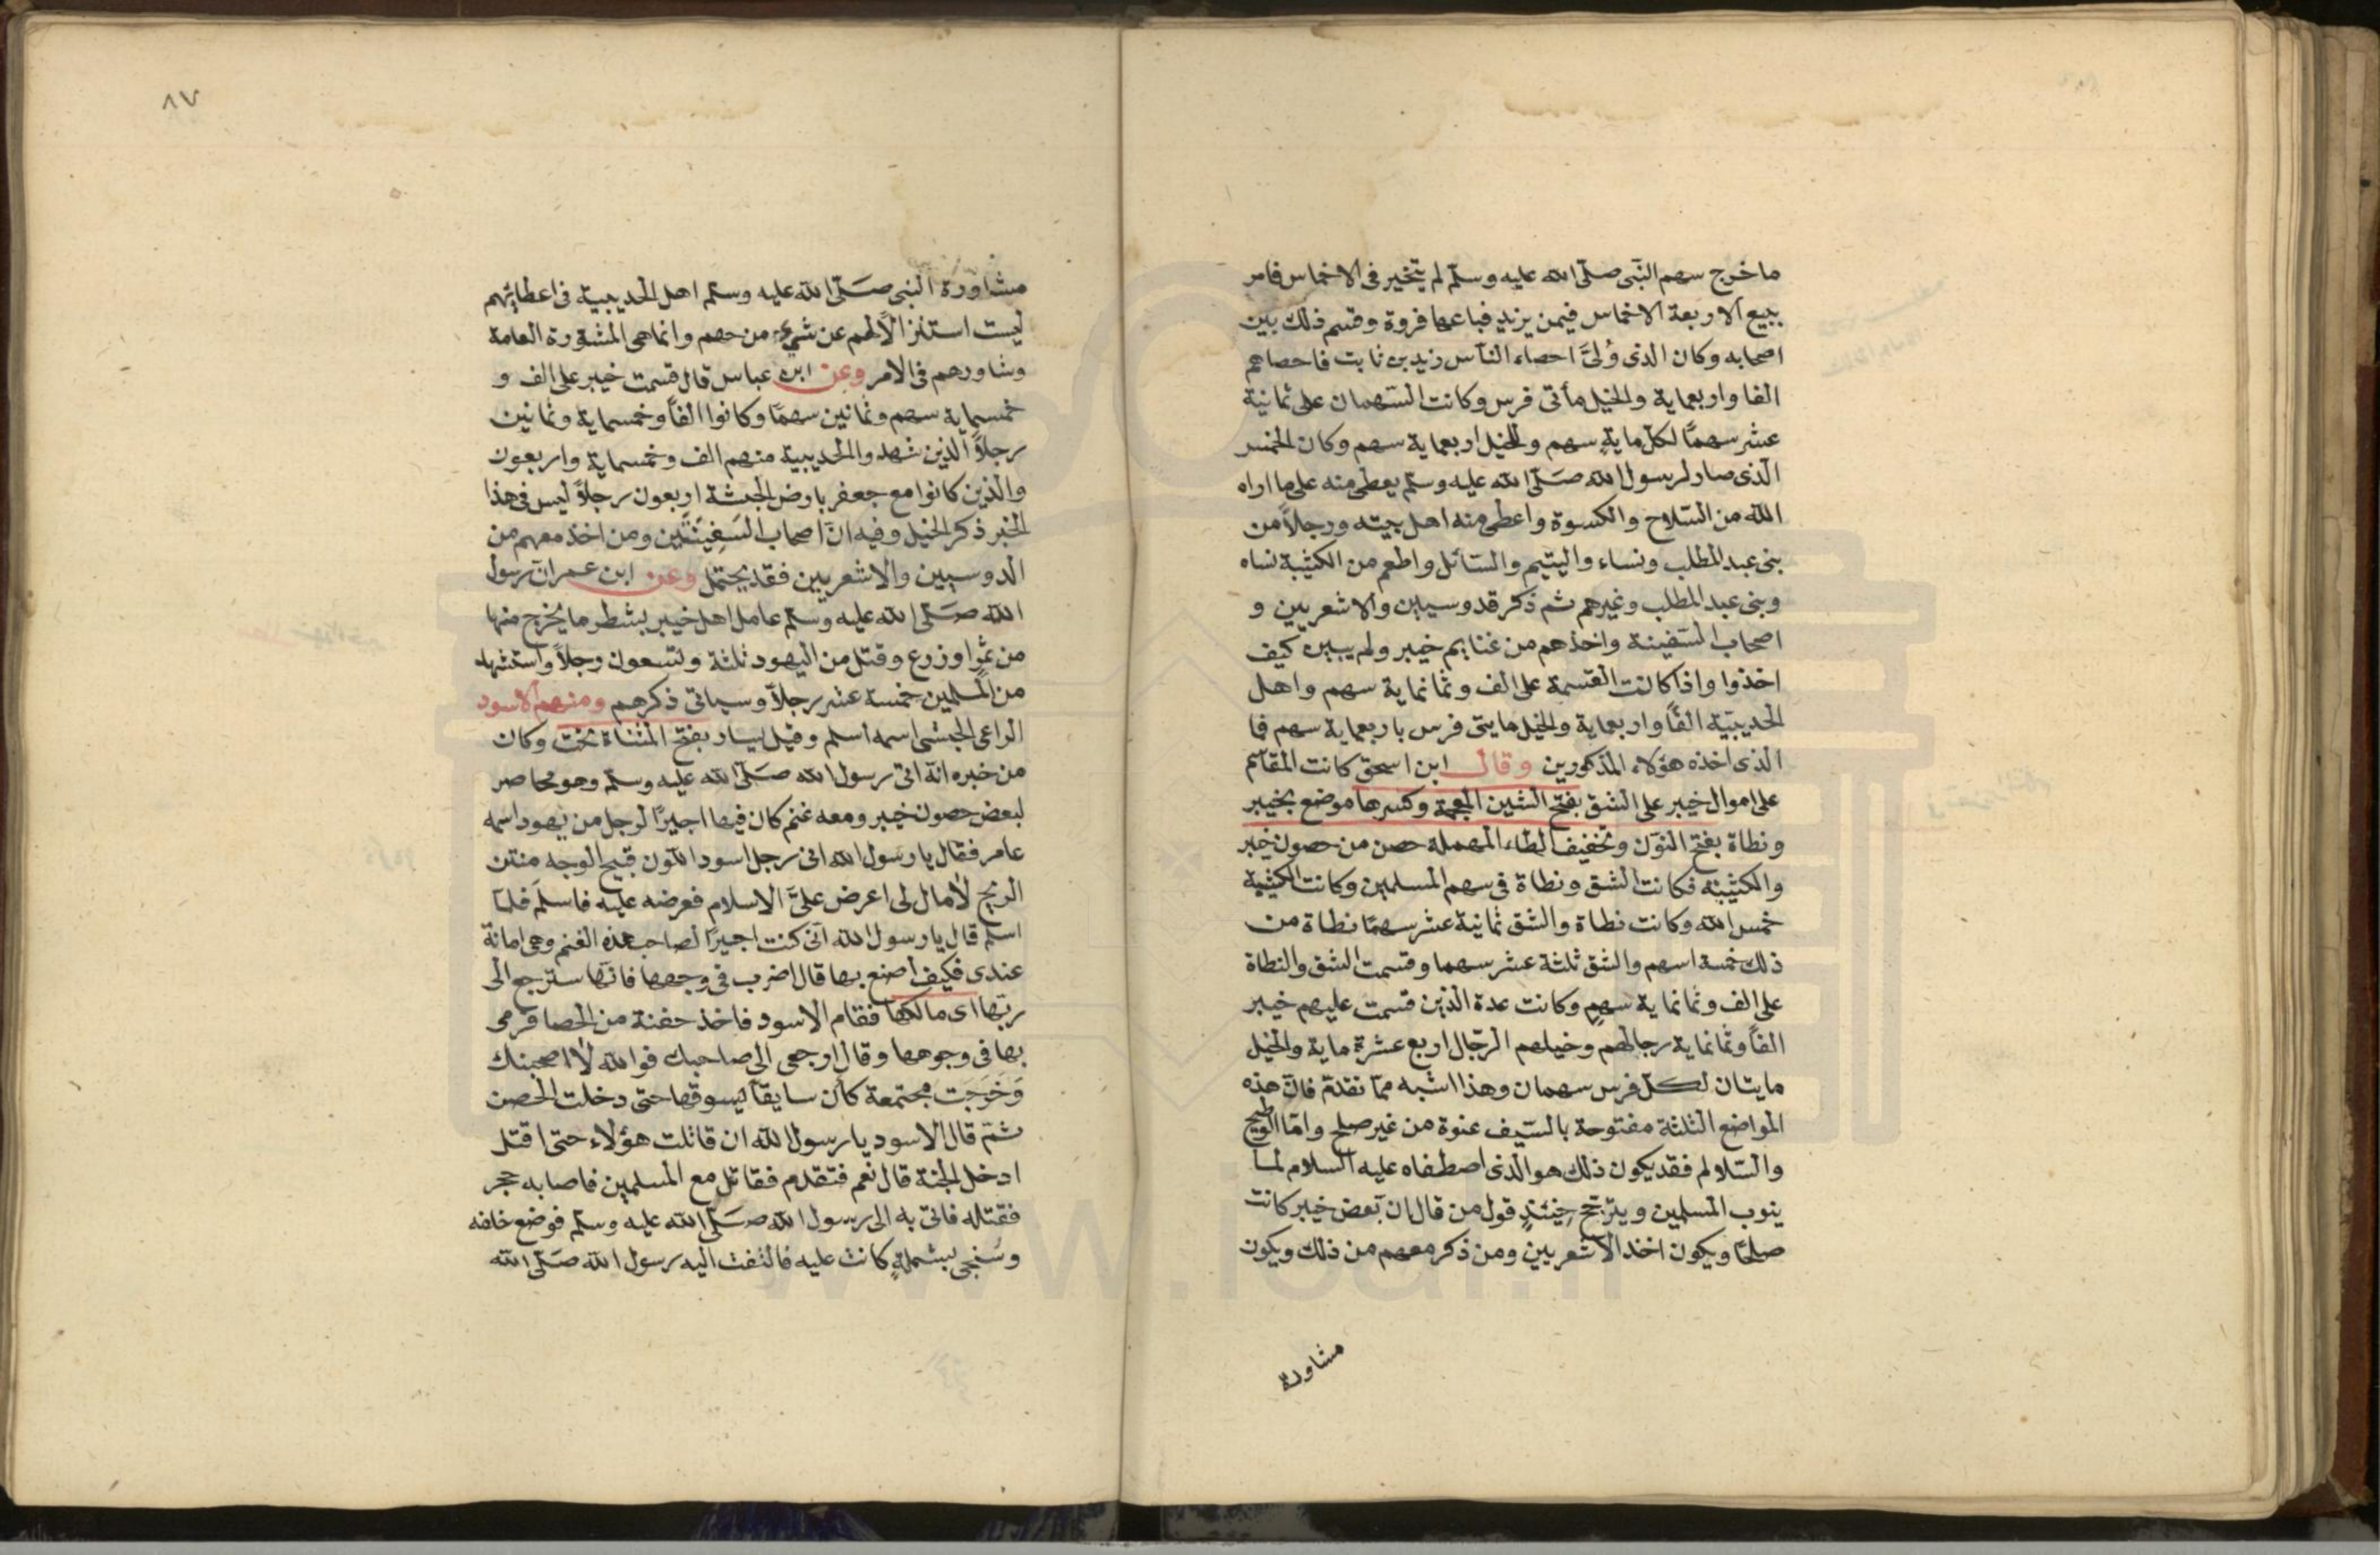 ما خرج سهم النبى صلّى الله عليه وسلّم لم يتخير فى الاخماس فامر
ببيع الاربعة الاخماس فيمن يزيد فباعها فروة وقسم ذلك بين
اصحابه وكان الذى وُلىَّ احصاء الناس زيد بن ثابت فاحصاهم
الفا واربعماية والخيل مأتى فرس وكانت السهمان على ثمانية
عشر سهمًا لكل مايةٍ سهم وللخيل اربعماية سهم وكان الخمس
الذى صار لرسول الله صَلّى الله عليه وسلّم يعطى منه على ما اراه
الله من السّلاح والكسوة واعطى منه اهل بيته ورجالاً من
بنى عبد المطلب ونساء واليتيم والسّائل واطعم من الكثيبة نساه
وبنى عبد المطلب وغيرهم ثم ذكر قدوسيين والاشعريين و
اصحاب السّفينة واخذهم من غنايم خيبر ولم يبين كيف
اخذوا واذا كانت القسمة على الف وثمانماية سهم واهل
الحديبيّة الفًا واربعماية والخيل مايتى فرس باربعماية سهم فا
الذى اخذه هؤلاء المذكورين وقال ابن اسحق كانت المقاسم
على اموال خيبر على الشق بفتح الشين المعجمة وكسرها موضع بخيبر
ونطاة بفتح النون وتخفيف الطاء المهملة حصن من حصون خيبر
والكثيبة فكانت الشق ونطاة فى سهم المسلمين وكانت الكثيبة
خمس الله وكانت نطاة والشق ثمانية عشر سهمًا نطاة من
ذلك خمسة اسهم والشق ثلثة عشر سهما وقسمت الشق والنطاة
على الف وثمانماية سهمٍ وكانت عدة الذين قسمت عليهم خيبر
الفًا وثمانماية رجالهم وخيلهم الرّجال اربع عشرة ماية والخيل
مايتان لكلّ فرس سهمان وهذا اشبه ممّا تقدم فانّ هذه
المواضع الثلثة مفتوحة بالسّيف عنوة من غير صلح وامّا الوطيح
والسّلالم فقد يكون ذلك هو الذى اصطفاه عليه السلام لما
ينوب المسلمين ويترجّح حينئذٍ قول من قال ان بعض خيبر كانت
صلحًا ويكون اخذ الاشعريين ومن ذكر معهم من ذلك ويكون
مشاورة
٨٧
مشاورة النبى صَلّى الله عليه وسلّم اهل الحديبية فى اعطائهم
ليست استنزالاً لهم عن شيء من حهم وانما هى المشورة العامة
وشاورهم فى الامر وعن ابن عباس قال قسمت خيبر على الف و
خمسماية سهم وثمانين سهمًا وكانوا الفًا وخمسماية وثمانين
رجلاً الذين شهدوا الحديبية منهم الف وخمسماية واربعون
والذين كانوا مع جعفر بارض الحبشة اربعون رجلاً ليس فى هذا
الخبر ذكر الخيل وفيه انّ اصحاب السّفينتين ومن اخذ معهم من
الدوسيين والاشعريين فقد يحتمل وعن ابن عمر ان رسول
الله صَلّى الله عليه وسلّم عامل اهل خيبر بشطر ما يخرج منها
من ثمر او زرع وقتل من اليهود ثلثة وتسعون رجلاً واستشهد
من المسلمين خمسة عشر رجلاً وسياتى ذكرهم ومنهم الاسود
الراعى الحبشى اسمه اسلم وقيل يسار بفتح المثناة تحت وكان
من خبره انّه اتى رسول الله صَلّى الله عليه وسلّم وهو محاصر
لبعض حصون خيبر ومعه غنم كان فيها اجيرًا لرجل من يهود اسمه
عامر فقال يا رسول الله انى رجل اسود اللّون قبيح الوجه منتن
الريح لا مال لى اعرض علىَّ الاسلام فعرضه عليه فاسلم فلمّا
اسلم قال يا رسول الله انّى كنت اجيرًا لصاحب هذه الغنم وهى امانة
عندى فكيف اصنع بها قال اضرب فى وجهها فانّها سترجع الى
ربّها اى مالكها فقام الاسود فاخذ حفنة من الحصا فرمى
بها فى وجوهها وقال ارجعى الى صاحبك فوالله لا اصحبنك
وَخَرَجت مجتمعة كأن سايقًا يسوقها حتى دخلت الحصن
ثمّ قال الاسود يا رسول الله ان قاتلت هؤلاء حتى اقتل
ادخل الجنة قال نعم فتقدم فقاتل مع المسلمين فاصابه حجر
فقتله فاتى به الى رسول الله صَلّى الله عليه وسلّم فوضع خلفه
وسُجى بشملةٍ كانت عليه فالتفت اليه رسول الله صَلّى الله